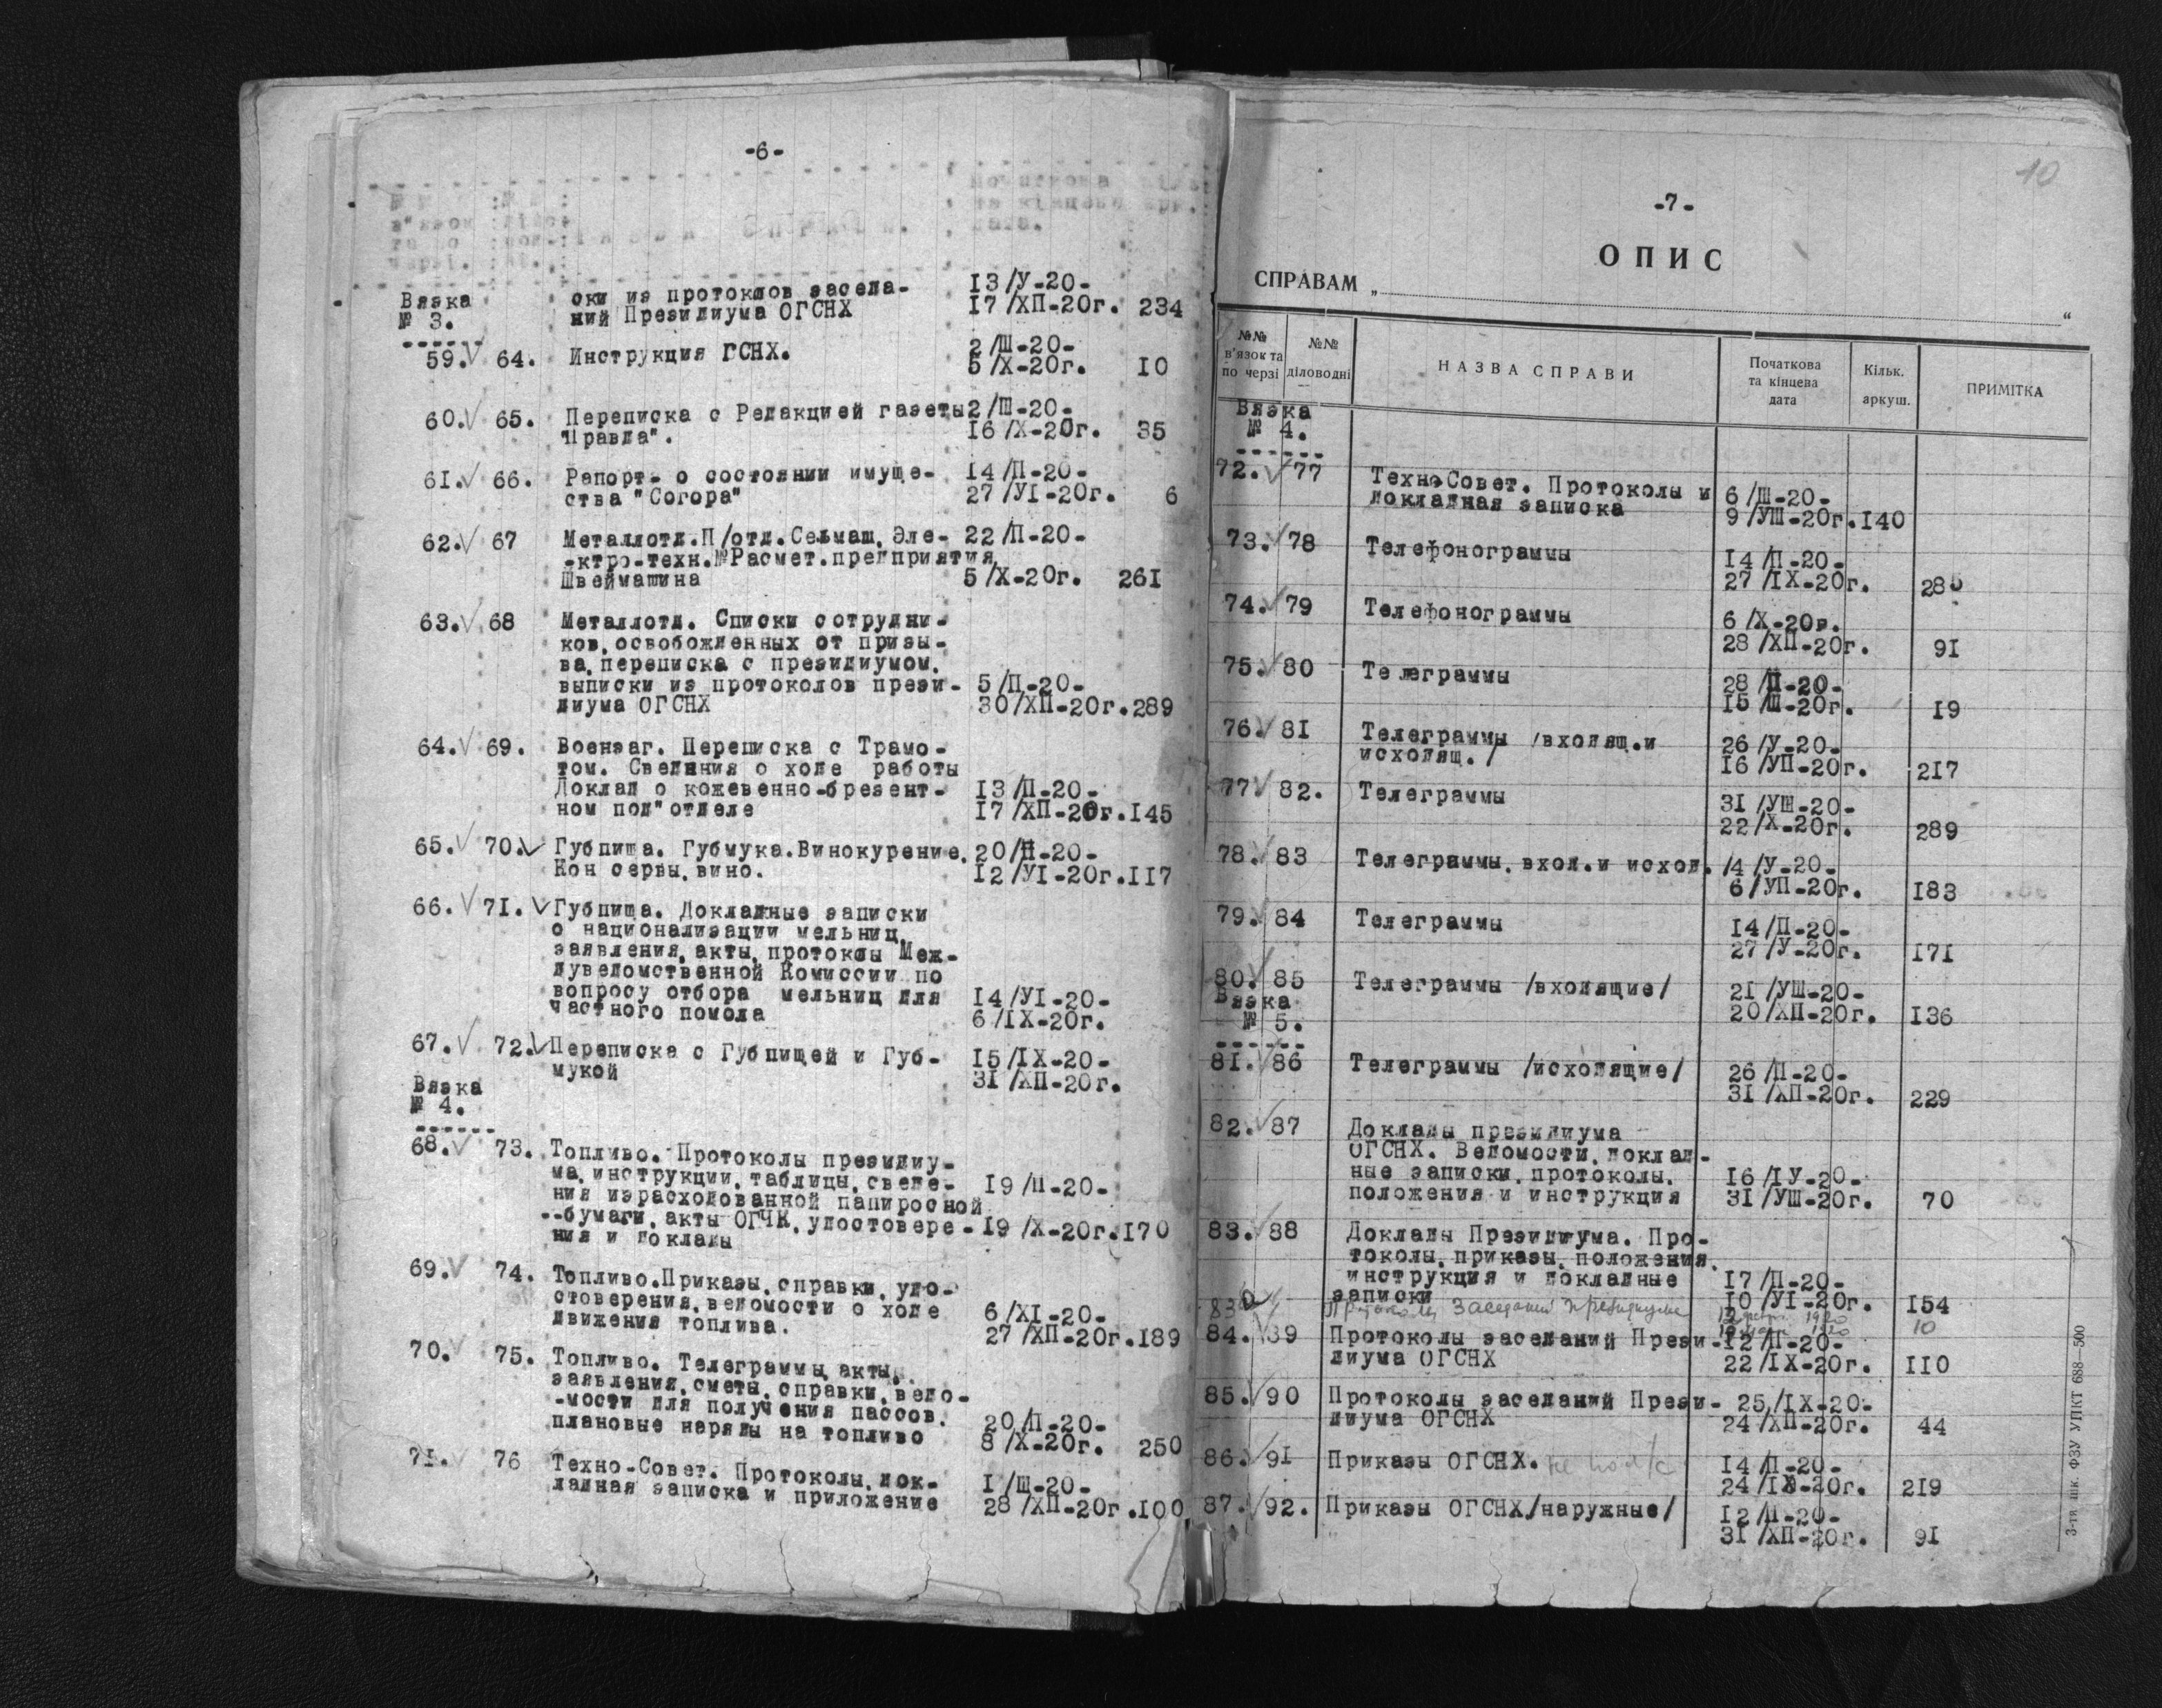 -6-
Вязка
№ 3.
ски из протоколов заседа-
ний Президиума ОГСНХ
13/У-20-
17/ХП-20г. 234
59. 64. Инструкция ГСНХ.
2/Ш-20-
5/Х-20г. 10
60. 65. Переписка с Редакцией газеты 2/Ш-20-
"Правда". 16/Х-20г. 35
61. 66. Рапорт- о состоянии имуще- 14/П-20-
ства "Согора" 27/УІ-20г. 6
62. 67 Металлотд.П/отд.Сельмаш, Эле- 22/П-20-
-ктро-техн.№Расмет.предприятия
Швеймашина 5/Х-20г. 261
63. 68 Металлотд. Списки сотрудни-
ков,освобожденных от призы-
ва,переписка с президиумом,
выписки из протоколов прези- 5/П-20-
диума ОГСНХ 30/ХП-20г.289
64. 69. Воензаг. Переписка с Трамо-
том. Сведения о ходе работы
Доклад о кожевенно-брезент- 13/П-20-
ном под"отделе 17/ХП-20г.145
65. 70. Губпища. Губмука.Винокурение, 20/П-20-
Кон сервы,вино. 12/УІ-20г.117
66. 71. Губпища. Докладные записки
о национализации мельниц,
заявления,акты,протоколы Меж-
дуведомственной Комиссии по
вопросу отбора мельниц для 14/УІ-20-
частного помола 6/ІХ-20г.
67. 72. Переписка с Губпищей и Губ- 15/ІХ-20-
мукой 31/ХП-20г.
Вязка
№ 4.
68. 73. Топливо. Протоколы президиу-
ма,инструкции,таблицы,сведе- 19/П-20-
ния израсходованной папиросной
--бумаги,акты ОГЧК,удостовере-19/Х-20г.170
ния и доклады
69. 74. Топливо.Приказы,справки,удо-
стоверения,ведомости о ходе 6/ХІ-20-
движения топлива. 27/ХП-20г.189
70. 75. Топливо. Телеграммы,акты,
заявления,сметы,справки,ведо-
-мости для получения пассов,
плановые наряды на топливо 20/П-20-
8/Х-20г. 250
71. 76 Техно-Совет. Протоколы,док- 1/Ш-20-
ладная записка и приложение 28/ХП-20г.100
10
-7-
ОПИС
СПРАВАМ „ “
№№ в'язок та по черзі
№№ діловодні
НАЗВА СПРАВИ
Початкова та кінцева дата
Кільк. аркуш.
ПРИМІТКА
Вязка
№ 4.
72. 77 ТехноСовет. Протоколы и 6/Ш-20-
докладная записка 9/УШ-20г.140
73. 78 Телефонограммы 14/П-20-
27/ІХ-20г.
74. 79 Телефонограммы 6/Х-20г.
28/ХП-20г. 91
75. 80 Телеграммы 28/П-20-
15/Ш-20г. 19
76. 81 Телеграммы /входящ.и 26/У-20-
исходящ./ 16/УП-20г. 217
77 82. Телеграммы 31/УШ-20-
22/Х-20г. 289
78. 83 Телеграммы,вход.и исход. /4/У-20-
6/УП-20г. 183
79. 84 Телеграммы 14/П-20-
27/У-20г. 171
80. 85 Телеграммы /входящие/ 21/УШ-20-
20/ХП-20г. 136
Вязка
№ 5.
81. 86 Телеграммы /исходящие/ 26/П-20-
31/ХП-20г. 229
82. 87 Доклады президиума
ОГСНХ. Ведомости,доклад-
ные записки,протоколы, 16/ІУ-20-
положения и инструкция 31/УШ-20г. 70
83. 88 Доклады Президиума. Про-
токолы,приказы,положения,
инструкция и докладные 17/П-20-
записки 10/УІ-20г. 154
Протоколы заседаний президиума 1920
1920 10
84. 89 Протоколы заседаний Прези-12/П-20-
диума ОГСНХ 22/ІХ-20г. 110
85. 90 Протоколы заседаний Прези- 25/ІХ-20-
диума ОГСНХ 24/ХП-20г. 44
86. 91 Приказы ОГСНХ. 14/П-20-
24/ІХ-20г. 219
87. 92. Приказы ОГСНХ/наружные/ 12/П-20-
31/ХП-20г. 91
3-тя шк. ФЗУ УПКТ 688—500